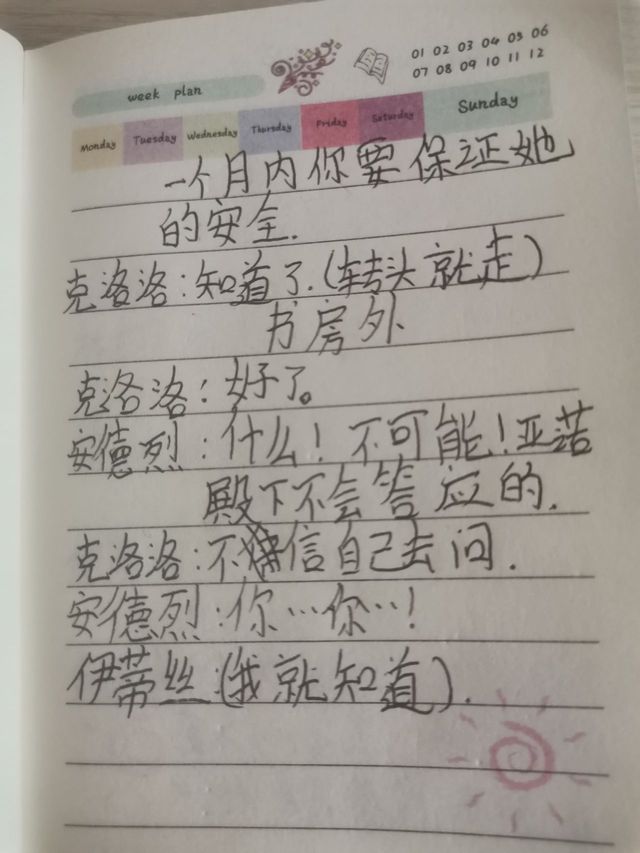 01 02 03 04 05 06
07 08 09 10 11 12
week plan
Monday Tuesday Wednesday Thursday Friday Saturday Sunday
一个月内你要保证她
的安全.
克洛洛:知道了.(转头就走)
书房外
克洛洛:好了。
安德烈:什么!不可能!亚诺
殿下不会答应的.
克洛洛:不信自己去问.
安德烈:你…你…!
伊蒂丝:(我就知道).